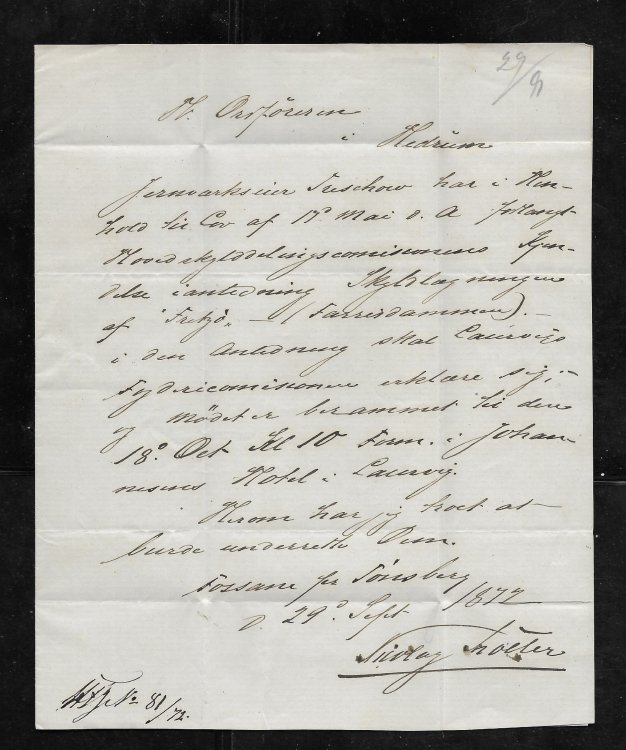 29/9
Hr. Ordföreren
i Hedrum
Jernværkseier Treschow har i Hen-
hold til Lov af 17de Mai d. A forlangt
Hovedskylddelingscomisionens Kjen-
delse i anledning Skyldlægningen
af "Fritzö" — (Farrisdammen). —
i den Anledning skal Laurvigs
Fogdericomisionen erklære sig; —
og mödet er berammet til den
18de Oct Kl 10 Form. i Johan-
nesens Hotel i Laurvig.
Herom har jeg troet at
burde underrette Dem.
Fossane pr Tönsberg
d. 29d Sept 1872
Nicolay
No 81/72.